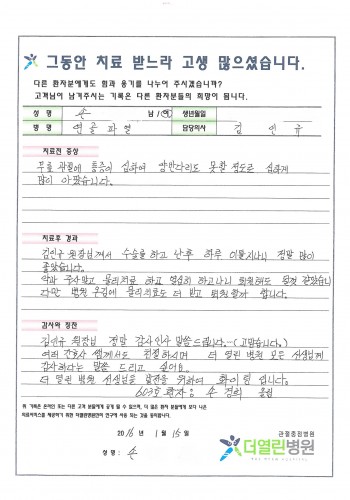 그동안 치료 받느라 고생 많으셨습니다.
다른 환자분에게도 힘과 용기를 나누어 주시겠습니까?
고객님이 남겨주시는 기록은 다른 환자분들의 희망이 됩니다.
성 명 손 남 / 여 생년월일
병 명 연골파열 담당의사 김 인 규
치료전 증상
무릎 관절에 통증이 심하여 양반다리도 못할 정도로 심하게
많이 아팠습니다.
치료후 경과
원장님께서 수술을 하고 난후 하루 이틀지나니 정말 많이
좋았습니다.
약과 주사맞고 물리치료 하고 열심히 하고나니 퇴원해도 될것 같았습니다
다만 병원 물리치료도 더 받고 퇴원할까 합니다.
감사와 칭찬
원장님 정말 감사인사 말씀드립니다~ (고맙습니다.)
여러 간호사 쌤께서도 친절하시며 더 열린 병원 모든 선생님께
감사하다는 말씀 드리고 싶어요.
더 열린 병원 선생님들 발전을 위하여 화이팅 입니다.
603호 환자 손 경희 올림
위 기록은 온라인 또는 다른 고객 분들에게 공개 될 수 있으며, 더 많은 환자 분들에게 보다 나은
의료서비스를 제공하기 위한 더열린병원만의 연구에 사용 되는 것을 동의합니다.
2016 년 1 월 15 일
성 명 : 손
관절중점병원
더열린병원